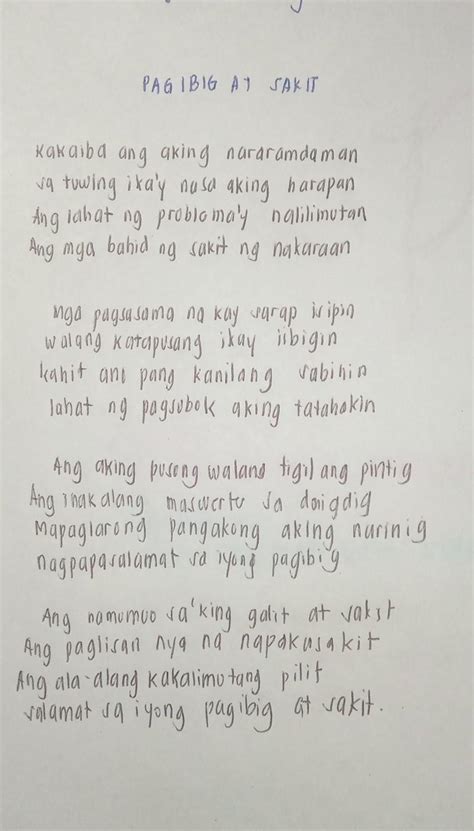 PAGIBIG AT SAKIT
Kakaiba ang aking nararamdaman
sa tuwing ika'y nasa aking harapan
Ang lahat ng problema'y nalilimutan
Ang mga bahid ng sakit ng nakaraan
mga pagsasama na kay sarap isipin
walang katapusang ikay iibigin
kahit ano pang kanilang sabihin
lahat ng pagsubok aking tatahakin
Ang aking pusong walang tigil ang pintig
Ang inakalang maswerte sa daigdig
Mapaglarong pangakong aking narinig
nagpapasalamat sa iyong pagibig
Ang namumuo sa'king galit at sakit
Ang paglisan nya na napakasakit
Ang ala-alang kakalimutang pilit
salamat sa iyong pagibig at sakit.